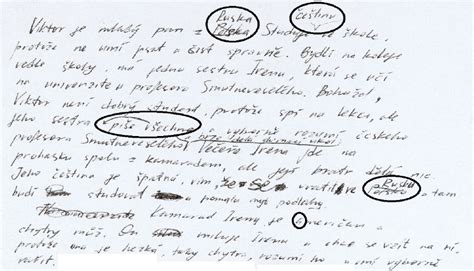 Ruska čeština
Viktor je mladý pan z Polska Studuje ve škole,
protože ne umí psat a číst spravně. Bydlí na koleje
vedle školy má jednu sestru Irenu, ktera se učí
na univerzite u profesora Smutneveselého. Bohužal,
Viktor není dobrý student, protože spí na lekce, ale
jeho sestra piše všechno výborně rozumí českeho
profesora Smutneveselého Večeře Irena jde na
prohasku spolu z kamaradem, ale její bratr dělá nic
Jeho čeština je špatná, vím, že se vratil ve Ruska a tam
budí studovat a pomalu myt podlahy
Kamarad Ireny je američan a
chytry můž. On miluje Irenu a chce se vzít na ní,
protože ona je hezká, taky chytra, rozumí ho a umí výborně
vařit.